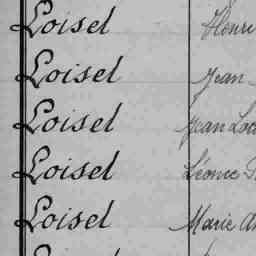 Loisel Henri
Loisel Jean
Loisel Jean
Loisel Léonie
Loisel Marie